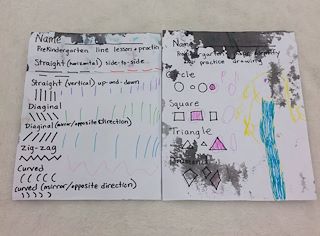 Name
PreKindergarten line lesson + practice
Straight (horizontal) side-to-side
Straight (vertical) up-and-down
Diaginal
Diaginal (mirror/opposite direction)
Zig-zag
Curved
Curved (mirror/opposite direction)
Name
shape identify
practice drawing
Circle
Square
Triangle